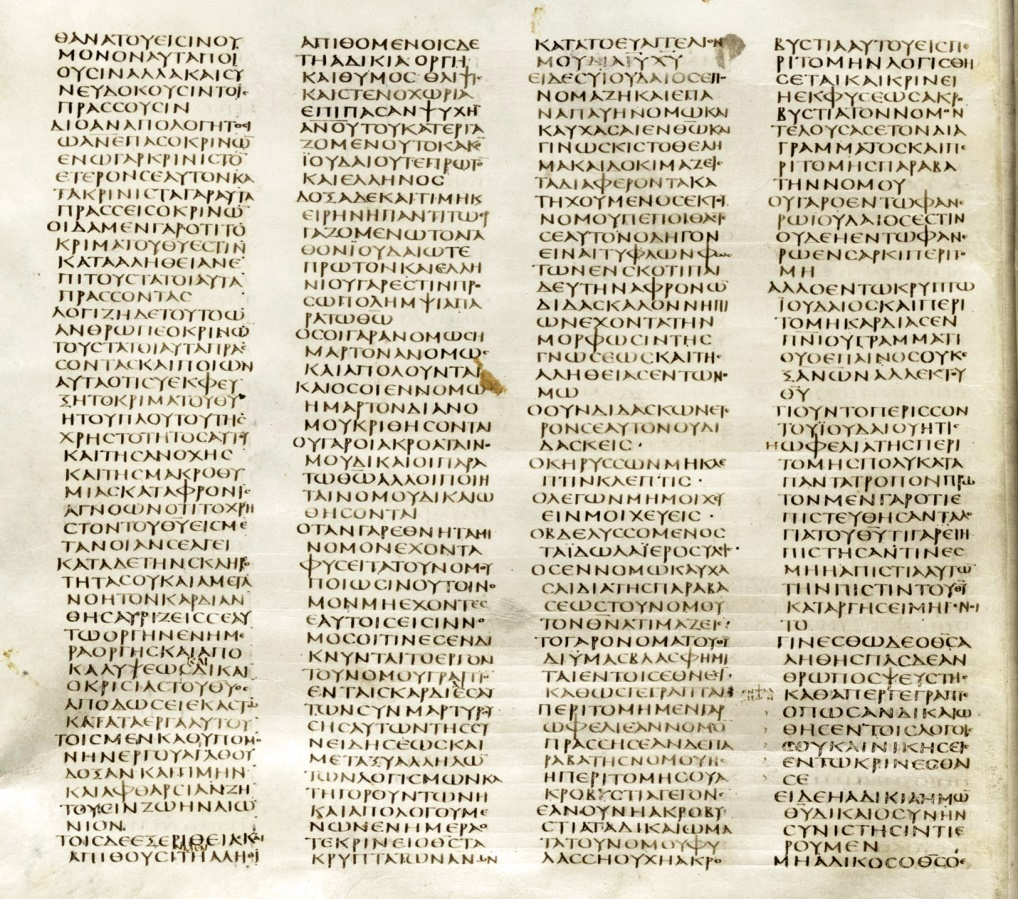 ΘΑΝΑΤΟΥΕΙCΙΝΟΥ
ΜΟΝΟΝΑΥΤΑΠΟΙ
ΟΥCΙΝΑΛΛΑΚΑΙCΥ
ΝΕΥΔΟΚΟΥCΙΝΤΟΙC
ΠΡΑCCΟΥCΙΝ
ΔΙΟΑΝΑΠΟΛΟΓΗΤΟC
ΩΑΝΕΠΑCΟΚΡΙΝΩ̅
ΕΝΩΓΑΡΚΡΙΝΙCΤΟ̅
ΕΤΕΡΟΝCΕΑΥΤΟΝΚΑ
ΤΑΚΡΙΝΙCΤΑΓΑΡΑΥΤΑ
ΠΡΑCCΕΙCΟΚΡΙΝΩ̅
ΟΙΔΑΜΕΝΓΑΡΟΤΙΤΟ
ΚΡΙΜΑΤΟΥΘΥΕCΤΙΝ
ΚΑΤΑΑΛΗΘΕΙΑΝΕ
ΠΙΤΟΥCΤΑΤΟΙΑΥΤΑ
ΠΡΑCCΟΝΤΑC
ΛΟΓΙΖΗΔΕΤΟΥΤΟΩ
ΑΝΘΡΩΠΕΟΚΡΙΝΩ̅
ΤΟΥCΤΑΤΟΙΑΥΤΑΠΡΑC
CΟΝΤΑCΚΑΙΠΟΙΩΝ
ΑΥΤΑΟΤΙCΥΕΚΦΕΥ
ΞΗΤΟΚΡΙΜΑΤΟΥΘΥ
ΗΤΟΥΠΛΟΥΤΟΥΤΗC
ΧΡΗCΤΟΤΗΤΟCΑΥΤΟΥ
ΚΑΙΤΗCΑΝΟΧΗC
ΚΑΙΤΗCΜΑΚΡΟΘΥ
ΜΙΑCΚΑΤΑΦΡΟΝΙC
ΑΓΝΟΩΝΟΤΙΤΟΧΡΗ
CΤΟΝΤΟΥΘΥΕΙCΜΕ
ΤΑΝΟΙΑΝCΕΑΓΕΙ
ΚΑΤΑΔΕΤΗΝCΚΛΗΡΟ
ΤΗΤΑCΟΥΚΑΙΑΜΕΤΑ
ΝΟΗΤΟΝΚΑΡΔΙΑΝ
ΘΗCΑΥΡΙΖΕΙCCΕΑΥ
ΤΩΟΡΓΗΝΕΝΗΜΕ
ΡΑΟΡΓΗCΚΑΙΑΠΟ
ΚΑΛΥΨΕΩCΔΙΚΑΙ
ΟΚΡΙCΙΑCΤΟΥΘΥΟC
ΑΠΟΔΩCΕΙΕΚΑCΤΩ
ΚΑΤΑΤΑΕΡΓΑΑΥΤΟΥ
ΤΟΙCΜΕΝΚΑΘΥΠΟΜΟ
ΝΗΝΕΡΓΟΥΑΓΑΘΟΥ
ΔΟΞΑΝΚΑΙΤΙΜΗΝ
ΚΑΙΑΦΘΑΡCΙΑΝΖΗ
ΤΟΥCΙΝΖΩΗΝΑΙΩ
ΝΙΟΝ
ΤΟΙCΔΕΕΞΕΡΙΘΕΙΑCΚΑΙ
ΑΠΙΘΟΥCΙΤΗΑΛΗΘΙ
ΑΠΙΘΟΜΕΝΟΙCΔΕ
ΤΗΑΔΙΚΙΑΟΡΓΗ
ΚΑΙΘΥΜΟCΘΛΙΨΙC
ΚΑΙCΤΕΝΟΧΩΡΙΑ
ΕΠΙΠΑCΑΝΨΥΧΗ̅
ΑΝΟΥΤΟΥΚΑΤΕΡΓΑ
ΖΟΜΕΝΟΥΤΟΚΑΚΟ̅
ΪΟΥΔΑΙΟΥΤΕΠΡΩΤΟ̅
ΚΑΙΕΛΛΗΝΟC
ΔΟΞΑΔΕΚΑΙΤΙΜΗΚ
ΕΙΡΗΝΗΠΑΝΤΙΤΩΕΡ
ΓΑΖΟΜΕΝΩΤΟΑΓΑ
ΘΟΝΪΟΥΔΑΙΩΤΕ
ΠΡΩΤΟΝΚΑΙΕΛΛΗ
ΝΙΟΥΓΑΡΕCΤΙΝΠΡΟ
CΩΠΟΛΗΜΨΙΑΠΑ
ΡΑΤΩΘΩ
ΟCΟΙΓΑΡΑΝΟΜΩCΗ
ΜΑΡΤΟΝΑΝΟΜΩC
ΚΑΙΑΠΟΛΟΥΝΤΑΙ
ΚΑΙΟCΟΙΕΝΝΟΜΩ
ΗΜΑΡΤΟΝΔΙΑΝΟ
ΜΟΥΚΡΙΘΗCΟΝΤΑΙ
ΟΥΓΑΡΟΙΑΚΡΟΑΤΑΙΝΟ
ΜΟΥΔΙΚΑΙΟΙΠΑΡΑ
ΤΩΘΩΑΛΛΟΙΠΟΙΗ
ΤΑΙΝΟΜΟΥΔΙΚΑΙΩ
ΘΗCΟΝΤΑΙ
ΟΤΑΝΓΑΡΕΘΝΗΤΑΜΗ
ΝΟΜΟΝΕΧΟΝΤΑ
ΦΥCΕΙΤΑΤΟΥΝΟΜΟΥ
ΠΟΙΩCΙΝΟΥΤΟΙΝΟ
ΜΟΝΜΗΕΧΟΝΤΕC
ΕΑΥΤΟΙCΕΙCΙΝΝΟ
ΜΟCΟΙΤΙΝΕCΕΝΔΙ
ΚΝΥΝΤΑΙΤΟΕΡΓΟΝ
ΤΟΥΝΟΜΟΥΓΡΑΠΤΟ̅
ΕΝΤΑΙCΚΑΡΔΙΕCΑΥ
ΤΩΝCΥΝΜΑΡΤΥΡΟΥ
CΗCΑΥΤΩΝΤΗCCΥ
ΝΕΙΔΗCΕΩCΚΑΙ
ΜΕΤΑΞΥΑΛΛΗΛΩ̅
ΤΩΝΛΟΓΙCΜΩΝΚΑ
ΤΗΓΟΡΟΥΝΤΩΝΗ
ΚΑΙΑΠΟΛΟΓΟΥΜΕ
ΝΩΝΕΝΗΜΕΡΑΟ
ΤΕΚΡΙΝΕΙΟΘCΤΑ
ΚΡΥΠΤΑΤΩΝΑΝΩΝ
ΚΑΤΑΤΟΕΥΑΓΓΕΛΙΟΝ
ΜΟΥΔΙΑΙΥΧΥ
ΕΙΔΕCΥΙΟΥΔΑΙΟCΕΠΟ
ΝΟΜΑΖΗΚΑΙΕΠΑ
ΝΑΠΑΥΗΝΟΜΩΚΑΙ
ΚΑΥΧΑCΑΙΕΝΘΩΚΑΙ
ΓΙΝΩCΚΙCΤΟΘΕΛΗ
ΜΑΚΑΙΔΟΚΙΜΑΖΕΙC
ΤΑΔΙΑΦΕΡΟΝΤΑΚΑ
ΤΗΧΟΥΜΕΝΟCΕΚΤΟΥ
ΝΟΜΟΥΠΕΠΟΙΘΑC
CΕΑΥΤΟΝΟΔΗΓΟΝ
ΕΙΝΑΙΤΥΦΛΩΝΦΩC
ΤΩΝΕΝCΚΟΤΙΠΑΙ
ΔΕΥΤΗΝΑΦΡΟΝΩ̅
ΔΙΔΑCΚΑΛΟΝΝΗΠΙ
ΩΝΕΧΟΝΤΑΤΗΝ
ΜΟΡΦΩCΙΝΤΗC
ΓΝΩCΕΩCΚΑΙΤΗC
ΑΛΗΘΕΙΑCΕΝΤΩΝΟ
ΜΩ
ΟΟΥΝΔΙΔΑCΚΩΝΕΤΕ
ΡΟΝCΕΑΥΤΟΝΟΥΔΙ
ΔΑCΚΕΙC·
ΟΚΗΡΥCCΩΝΜΗΚΛΕ
ΠΤΙΝΚΛΕΠΤΙC·
ΟΛΕΓΩΝΜΗΜΟΙΧΕΥ
ΕΙΝΜΟΙΧΕΥΕΙC·
ΟΒΔΕΛΥCCΟΜΕΝΟC
ΤΑΪΔΩΛΑΪΕΡΟCΥΛΙC·
ΟCΕΝΝΟΜΩΚΑΥΧΑ
CΑΙΔΙΑΤΗCΠΑΡΑΒΑ
CΕΩCΤΟΥΝΟΜΟΥ
ΤΟΝΘΝΑΤΙΜΑΖΕΙC
ΤΟΓΑΡΟΝΟΜΑΤΟΥΘΥ
ΔΙΥΜΑCΒΛΑCΦΗΜΙ
ΤΑΙΕΝΤΟΙCΕΘΝΕCΙ
ΚΑΘΩCΓΕΓΡΑΠΤΑΙ
ΠΕΡΙΤΟΜΗΜΕΝΓΑΡ
ΩΦΕΛΙΕΑΝΝΟΜΟ̅
ΠΡΑCCΗCΕΑΝΔΕΠΑ
ΡΑΒΑΤΗCΝΟΜΟΥΗC
ΗΠΕΡΙΤΟΜΗCΟΥΑ
ΚΡΟΒΥCΤΙΑΓΕΓΟΝΕ
ΕΑΝΟΥΝΗΑΚΡΟΒΥ
CΤΙΑΤΑΔΙΚΑΙΩΜΑ
ΤΑΤΟΥΝΟΜΟΥΦΥ
ΛΑCCΗΟΥΧΗΑΚΡΟ
ΒΥCΤΙΑΑΥΤΟΥΕΙCΠΕ
ΡΙΤΟΜΗΝΛΟΓΙCΘΗ
CΕΤΑΙΚΑΙΚΡΙΝΕΙ
ΗΕΚΦΥCΕΩCΑΚΡΟ
ΒΥCΤΙΑΤΟΝΝΟΜΟΝ
ΤΕΛΟΥCΑCΕΤΟΝΔΙΑ
ΓΡΑΜΜΑΤΟCΚΑΙΠΕ
ΡΙΤΟΜΗCΠΑΡΑΒΑ
ΤΗΝΝΟΜΟΥ
ΟΥΓΑΡΟΕΝΤΩΦΑΝΕ
ΡΩΙΟΥΔΑΙΟCΕCΤΙΝ
ΟΥΔΕΗΕΝΤΩΦΑΝΕ
ΡΩΕΝCΑΡΚΙΠΕΡΙΤΟ
ΜΗ
ΑΛΛΟΕΝΤΩΚΡΥΠΤΩ
ΙΟΥΔΑΙΟCΚΑΙΠΕΡΙ
ΤΟΜΗΚΑΡΔΙΑCΕΝ
ΠΝΙΟΥΓΡΑΜΜΑΤΙ
ΟΥΟΕΠΑΙΝΟCΟΥΚΕ
ΞΑΝΩΝΑΛΛΕΚΤΟΥ
ΘΥ
ΤΙΟΥΝΤΟΠΕΡΙCCΟΝ
ΤΟΥΪΟΥΔΑΙΟΥΗΤΙC
ΗΩΦΕΛΙΑΤΗCΠΕΡΙ
ΤΟΜΗCΠΟΛΥΚΑΤΑ
ΠΑΝΤΑΤΡΟΠΟΝΠΡΩ
ΤΟΝΜΕΝΓΑΡΟΤΙΕ
ΠΙCΤΕΥΘΗCΑΝΤΑΛΟ
ΓΙΑΤΟΥΘΥΤΙΓΑΡΕΙΗ
ΠΙCΤΗCΑΝΤΙΝΕC
ΜΗΗΑΠΙCΤΙΑΑΥΤΩ̅
ΤΗΝΠΙCΤΙΝΤΟΥΘΥ
ΚΑΤΑΡΓΗCΕΙΜΗΓΕΝΟΙ
ΤΟ
ΓΙΝΕCΘΩΔΕΟΘCΑ
ΛΗΘΗCΠΑCΔΕΑΝ
ΘΡΩΠΟCΨΕΥCΤΗC
ΚΑΘΑΠΕΡΓΕΓΡΑΠΤΑΙ
ΟΠΩCΑΝΔΙΚΑΙΩ
ΘΗCΕΝΤΟΙCΛΟΓΟΙC
CΟΥΚΑΙΝΙΚΗCΕΙC
ΕΝΤΩΚΡΙΝΕCΘΑΙ
CΕ
ΕΙΔΕΗΑΔΙΚΙΑΗΜΩ̅
ΘΥΔΙΚΑΙΟCΥΝΗΝ
CΥΝΙCΤΗCΙΝΤΙΕ
ΡΟΥΜΕΝ
ΜΗΑΔΙΚΟCΟΘCΟ